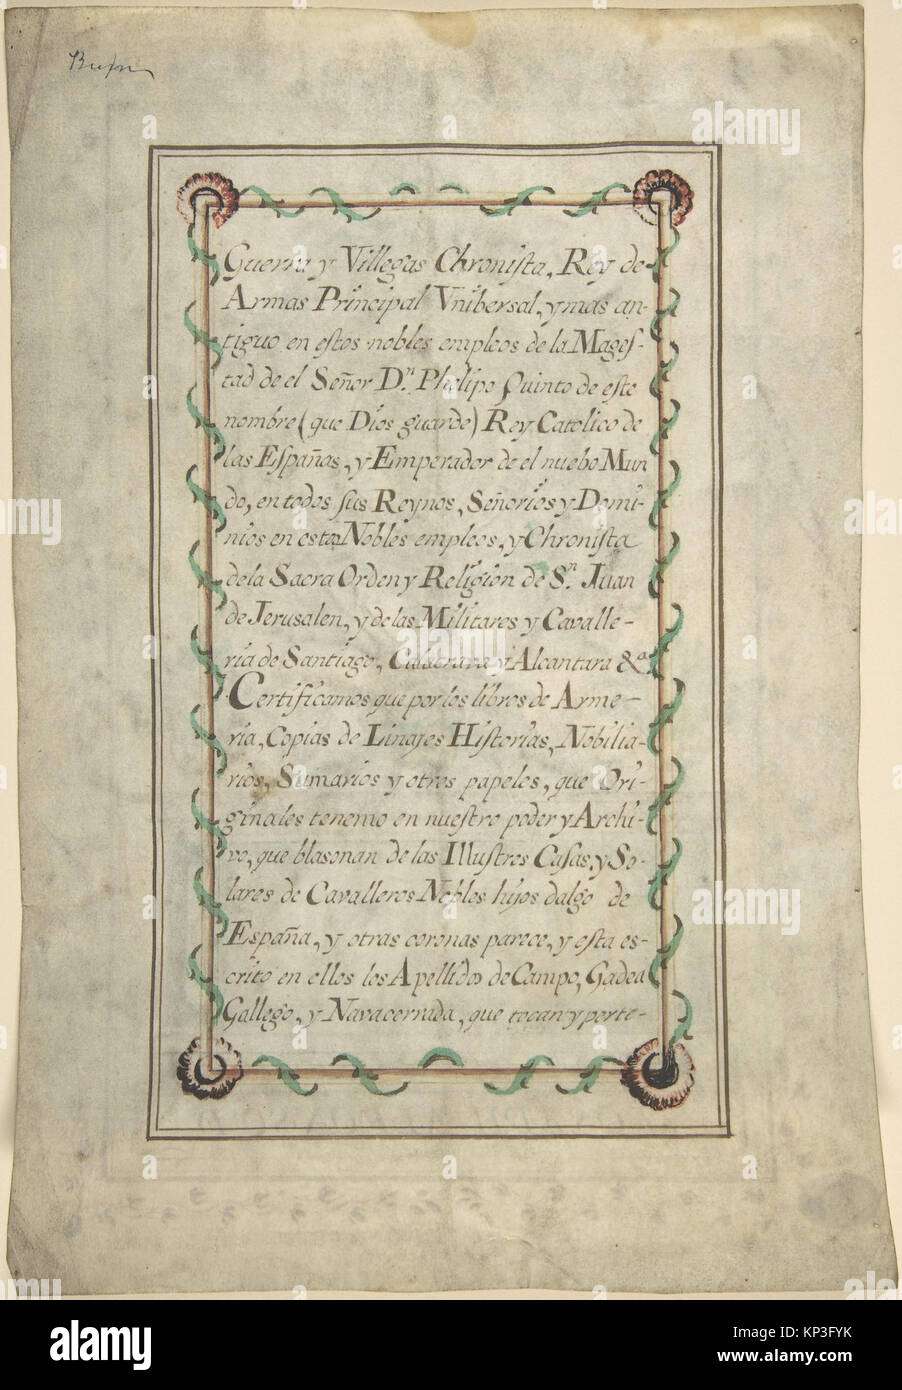 Guerra y Villegas Chronista, Rey de
Armas Principal Vnibersal, y mas an-
tiguo en estos nobles empleos de la Mages-
tad de el Señor Dn. Phelipe Quinto de este
nombre (que Dios guarde) Rey Catolico de
las Españas, y Emperador de el nuebo Mun
do, en todos sus Reynos, Señorios y Domi-
nios en estos Nobles empleos, y Chronista
de la Sacra Orden y Religion de Sn. Juan
de Jerusalen, y de las Militares y Cavalle-
ria de Santiago, Calatrava y Alcantara &a
Certificamos que por los libros de Arme-
ria, Copias de Linajes Historias, Nobilia-
rios, Sumarios y otros papeles, que Ori-
ginales tenemo en nuestro poder y Archi-
vo, que blasonan de las Illustres Casas, y So-
lares de Cavalleros Nobles hijos dalgo de
España, y otras coronas parece, y esta es-
crito en ellos los Apellidos de Campo, Gadea
Gallego, y Navacerrada, que tocan y perte-
alamy
Image ID: KP3FYK
www.alamy.com